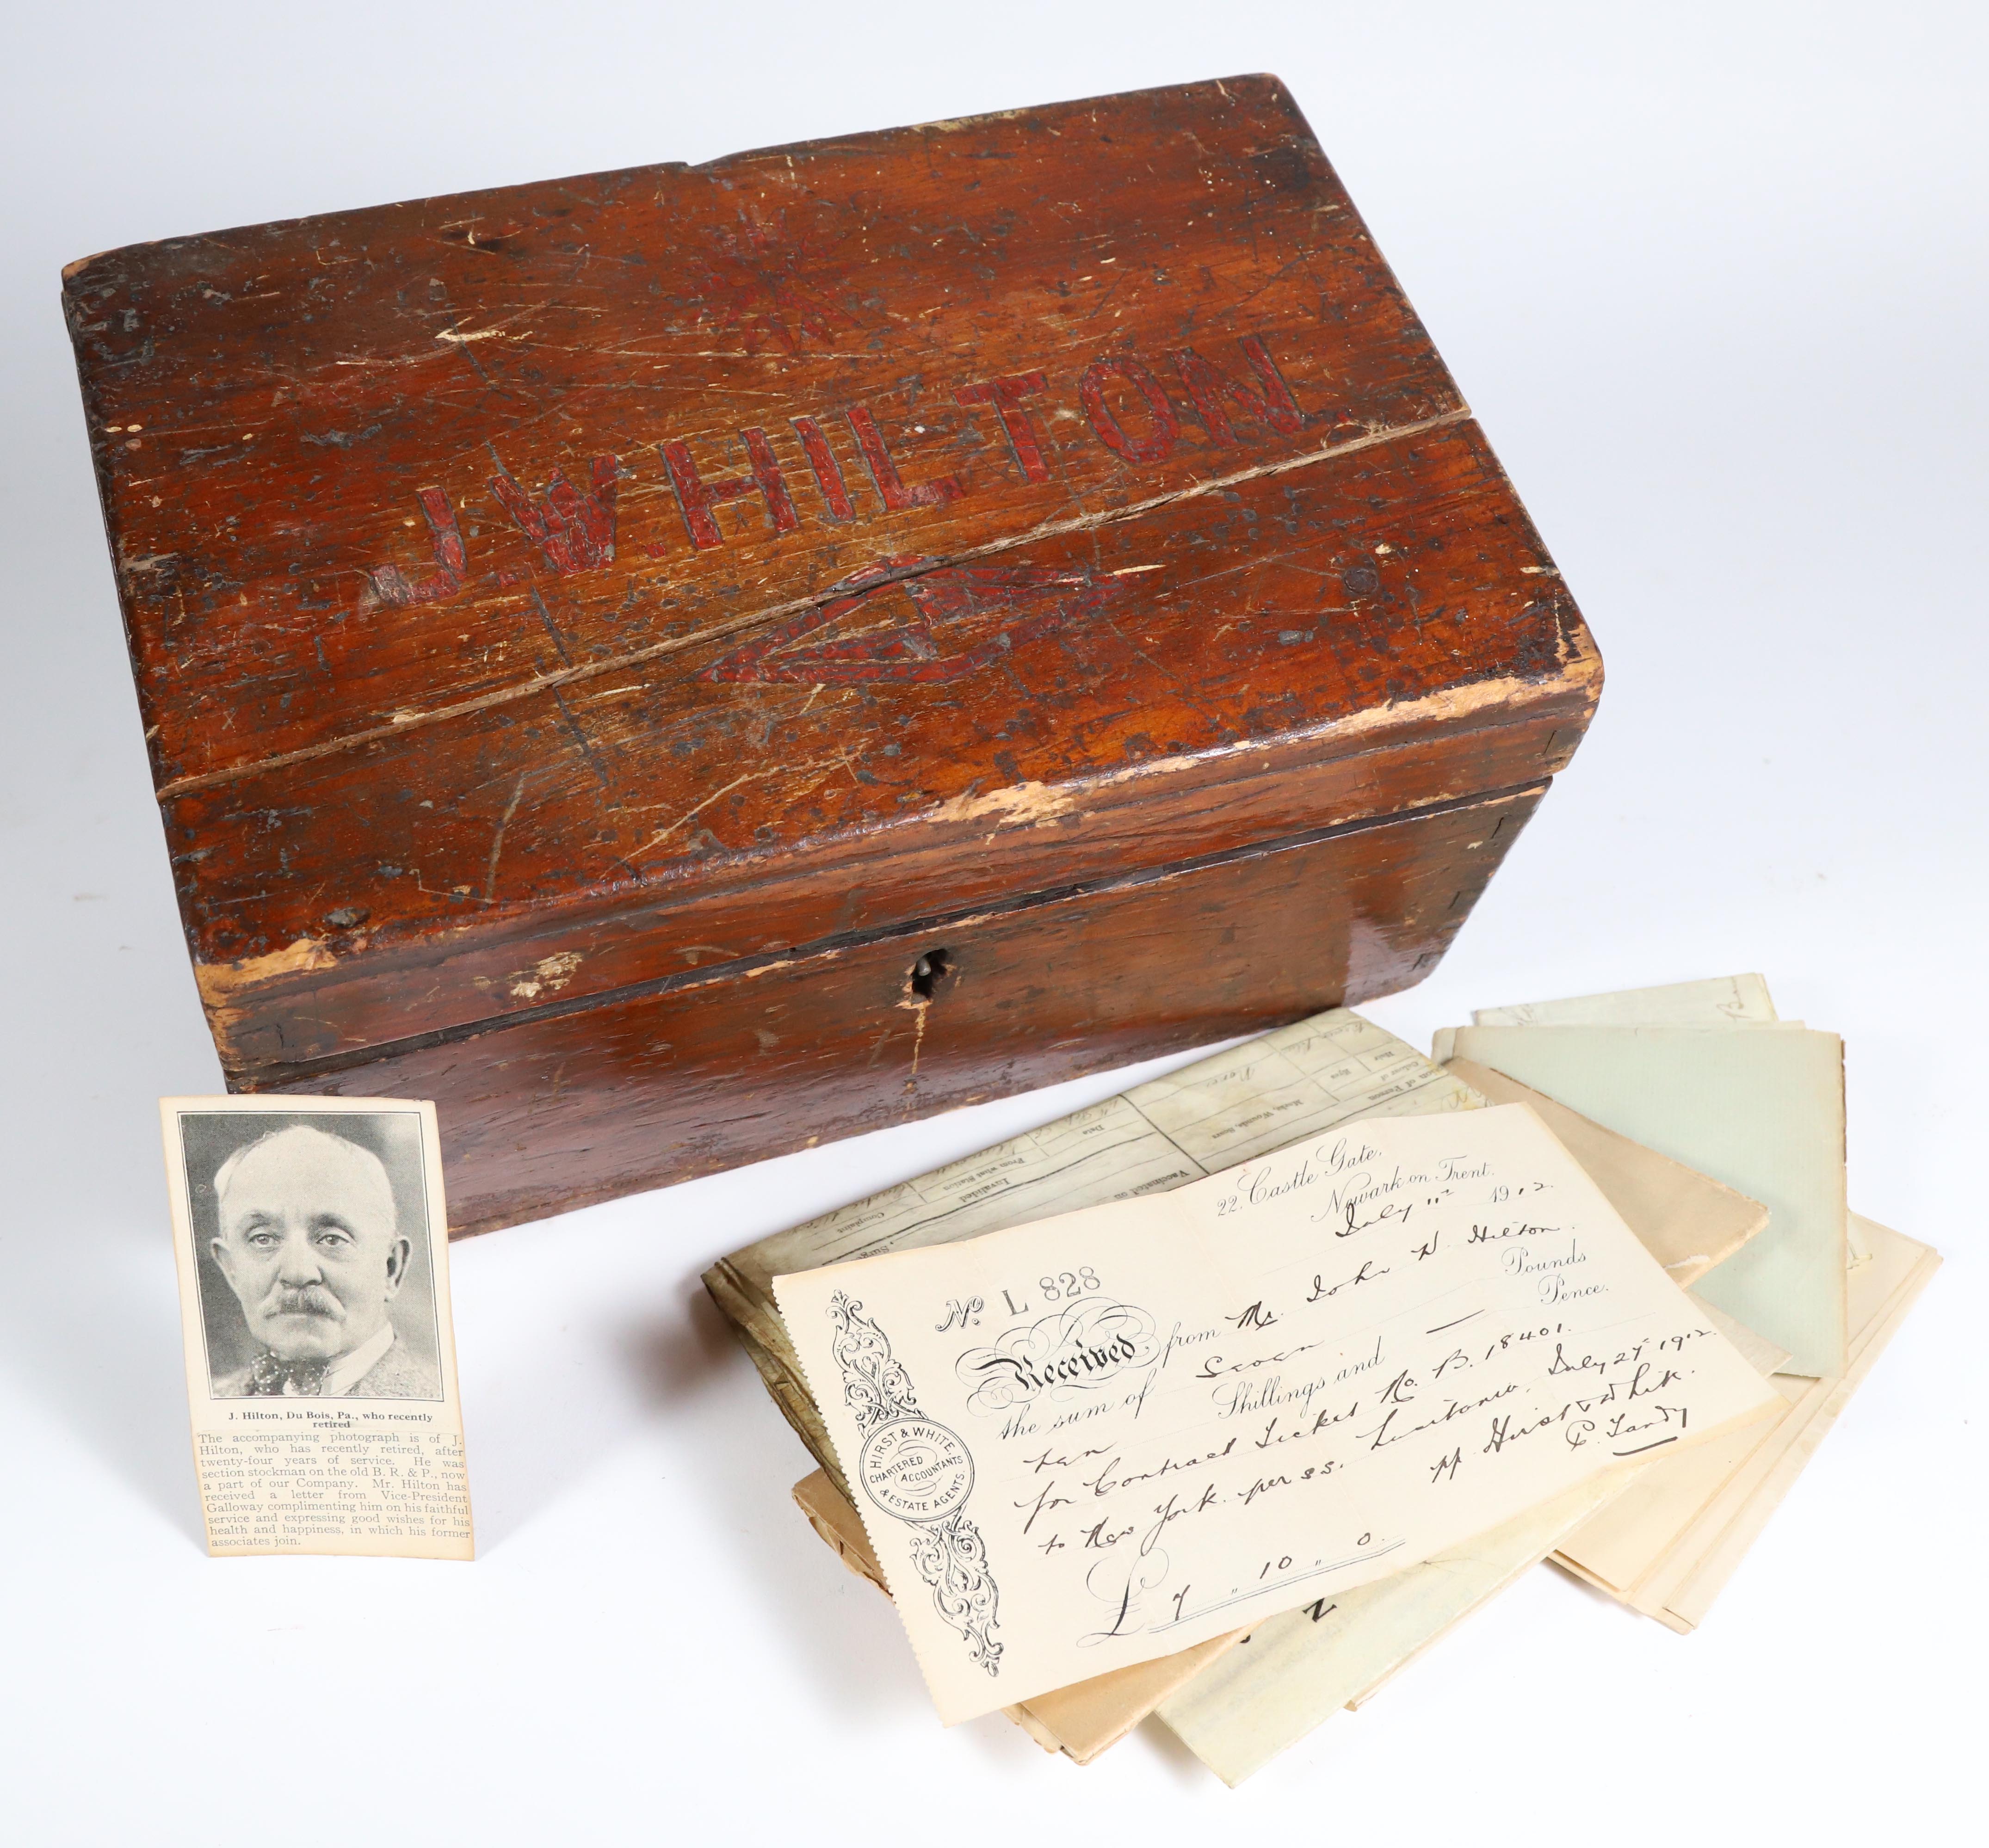 J.W.HILTON
J. Hilton, Du Bois, Pa., who recently
retired
The accompanying photograph is of J.
Hilton, who has recently retired, after
twenty-four years of service. He was
section stockman on the old B. R. & P., now
a part of our Company. Mr. Hilton has
received a letter from Vice-President
Galloway complimenting him on his faithful
service and expressing good wishes for his
health and happiness, in which his former
associates join.
22, Castle Gate,
Newark on Trent.
July 11th 1912
No L 828
Received from Mr. John W. Hilton.
the sum of Seven Pounds
ten Shillings and — Pence.
for Contract Ticket No. B. 18401.
to New York. per ss. Lusitania, July 27 1912.
pp. Hirst & White.
£ 7 " 10 " 0.
HIRST & WHITE,
CHARTERED ACCOUNTANTS
& ESTATE AGENTS.